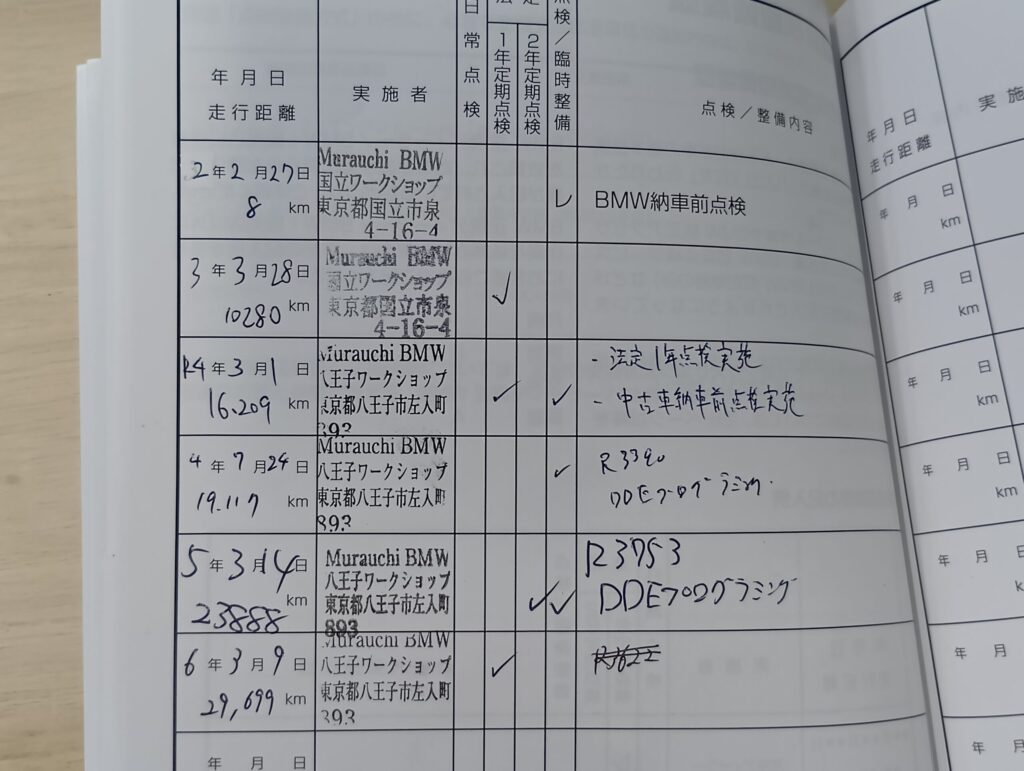 日常点検
法定
1年定期点検
2年定期点検
点検／臨時整備
年月日
走行距離
実施者
点検／整備内容
2年2月27日
8 km
Murauchi BMW
国立ワークショップ
東京都国立市泉
4-16-4
レ
BMW納車前点検
3年3月28日
10280 km
Murauchi BMW
国立ワークショップ
東京都国立市泉
4-16-4
✓
R4年3月1日
16.209 km
Murauchi BMW
八王子ワークショップ
東京都八王子市左入町
893
✓ ✓
- 法定1年点検実施
- 中古車納車前点検実施
4年7月24日
19.117 km
Murauchi BMW
八王子ワークショップ
東京都八王子市左入町
893
✓
R3390
DDEプログラミング.
5年3月14日
23888 km
Murauchi BMW
八王子ワークショップ
東京都八王子市左入町
893
✓ ✓
R3753
DDEプログラミング
6年3月9日
29,699 km
Murauchi BMW
八王子ワークショップ
東京都八王子市左入町
893
✓
年月日
年月日
走行距離
実施
年月日
km
年月日
km
年月日
km
年月日
km
年月日
年月日
年月日